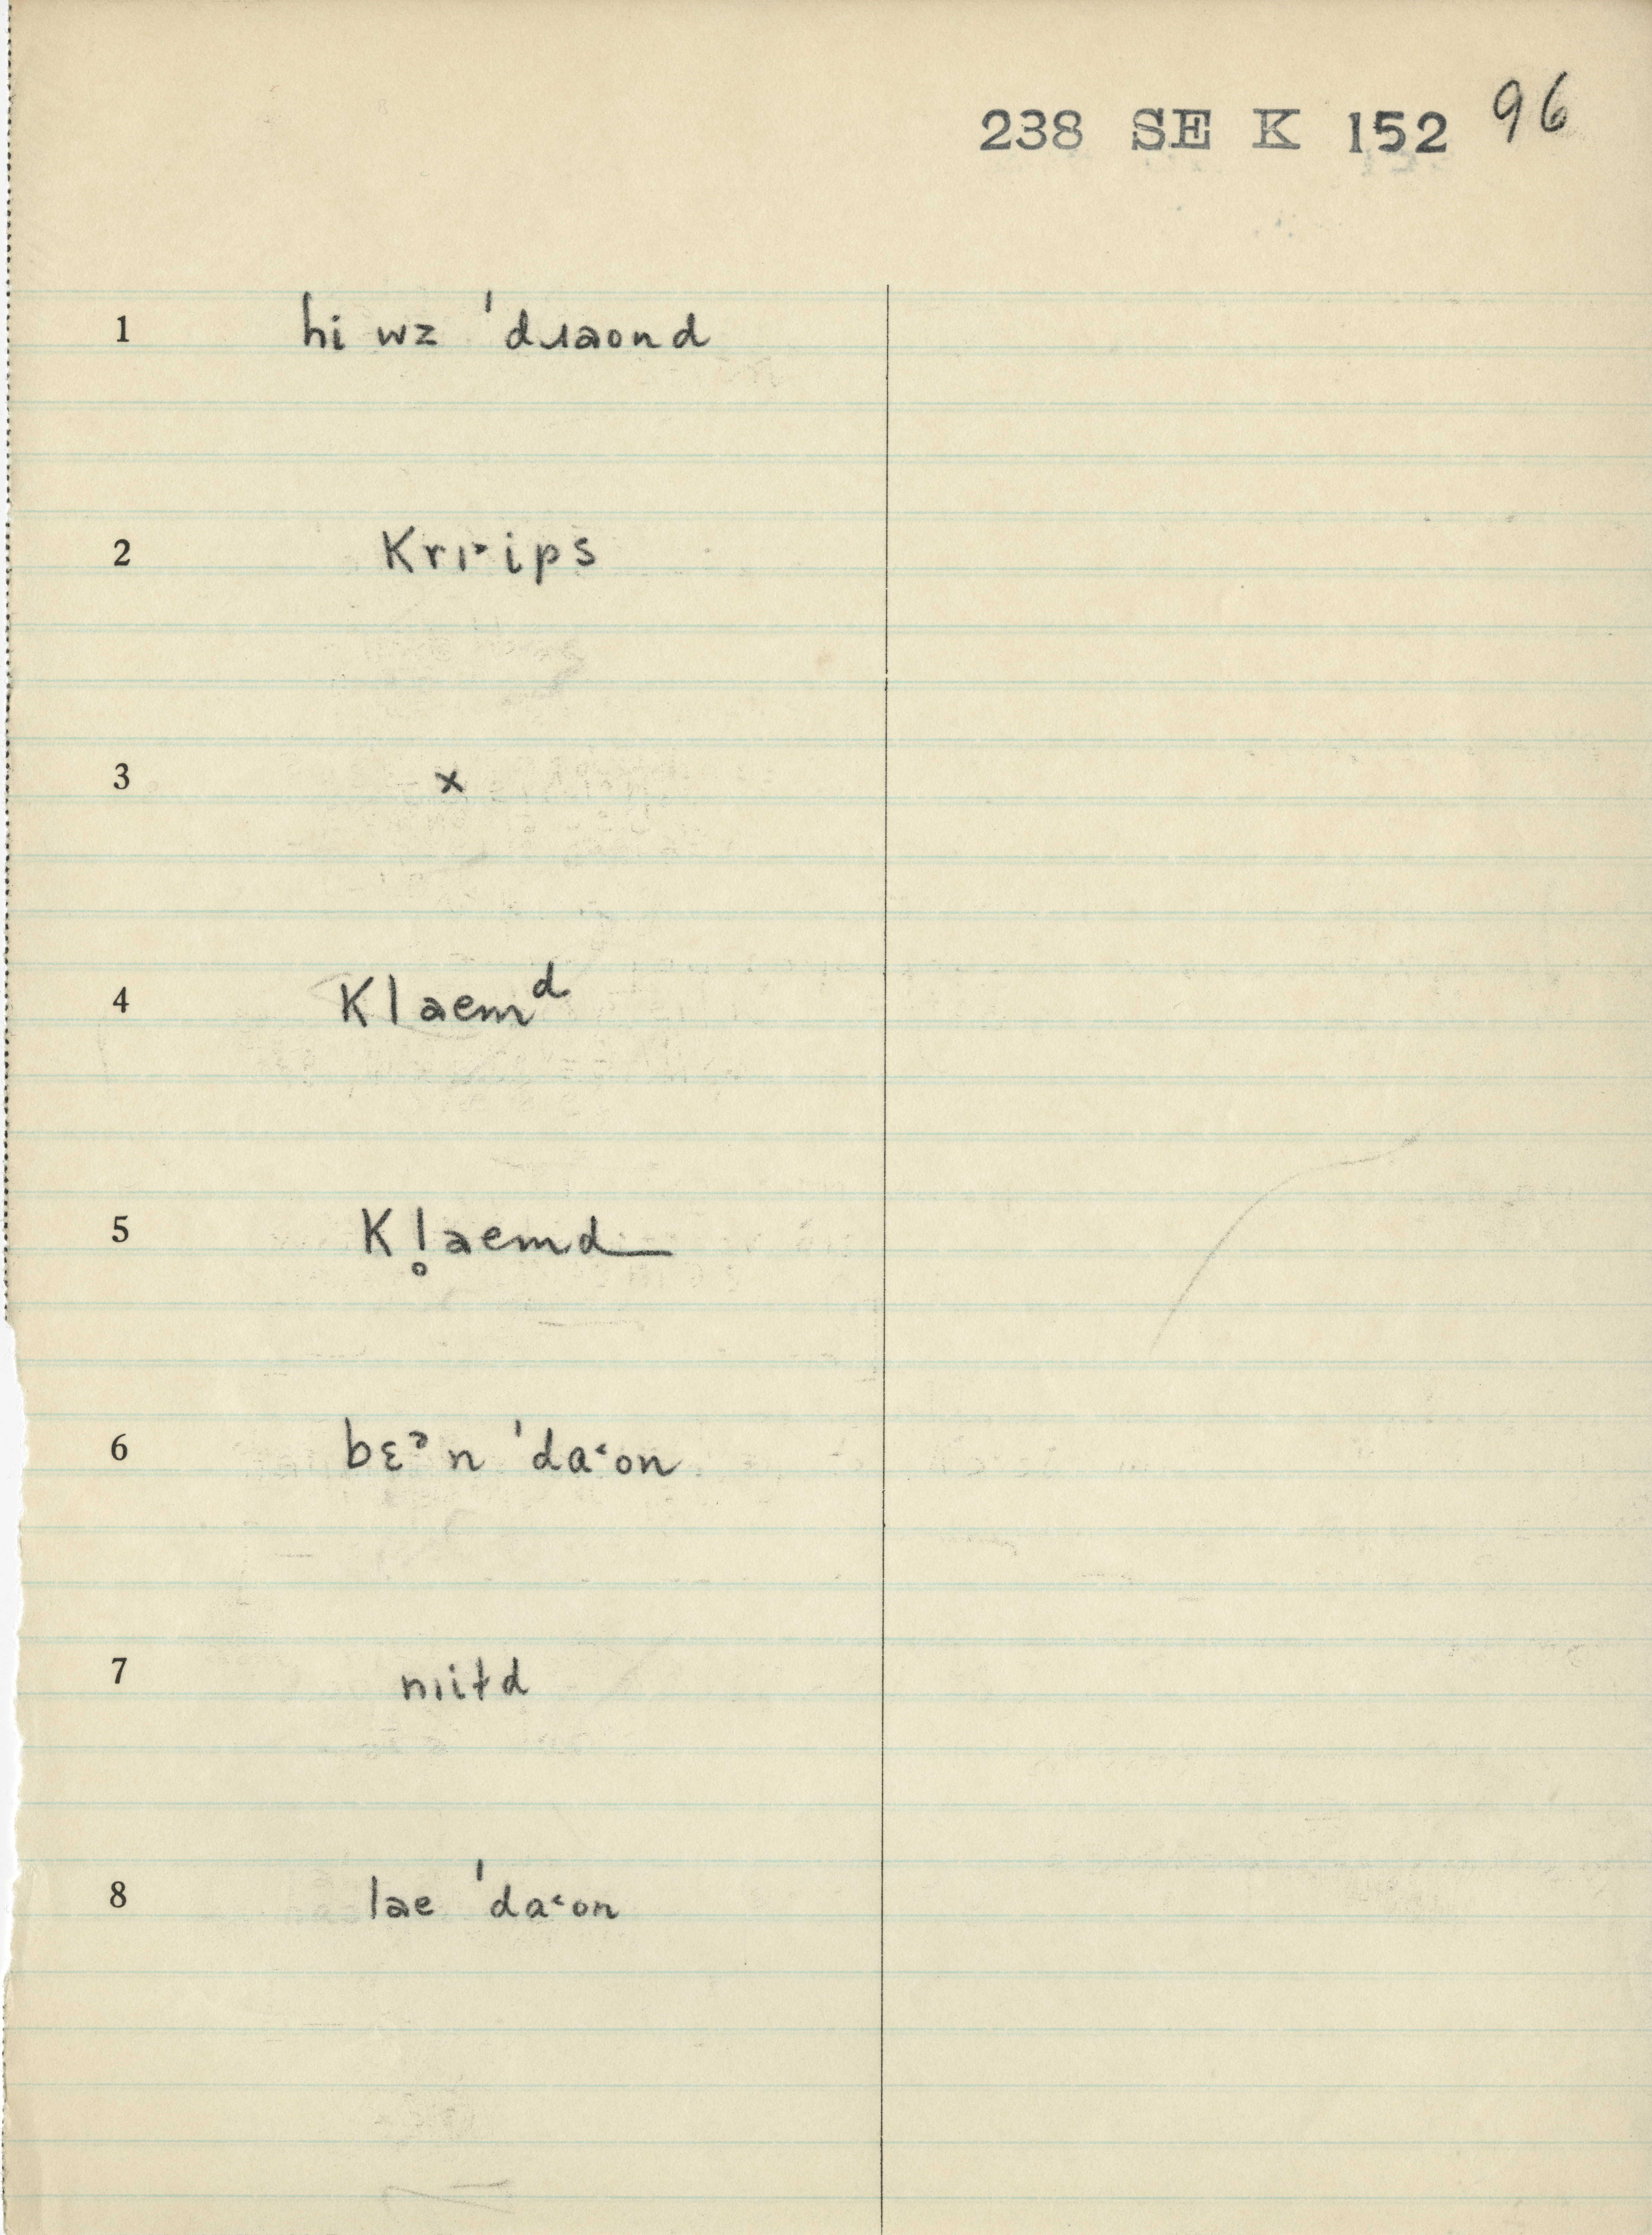 238 SE K 152 96
1 hi wz ˈdɹaond
2 krɪ˃ips
3 x
4 klaemᵈ
5 kl̥aemd
6 bɛᵊn ˈda˂on
7 nɪitd
8 lae ˈda˂on